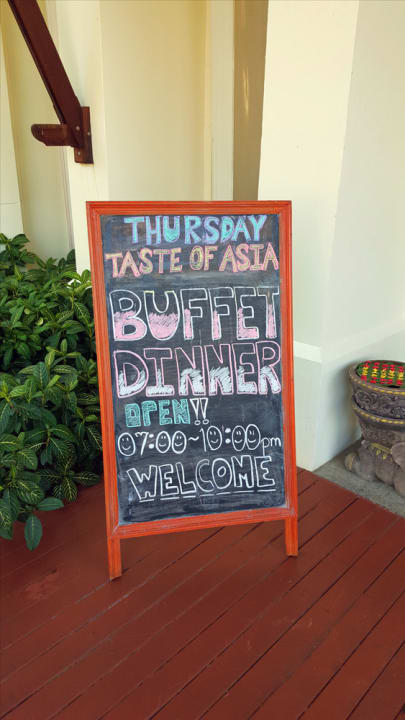 THURSDAY
TASTE OF ASIA
BUFFET
DINNER
OPEN!!
07:00~10:00pm
WELCOME